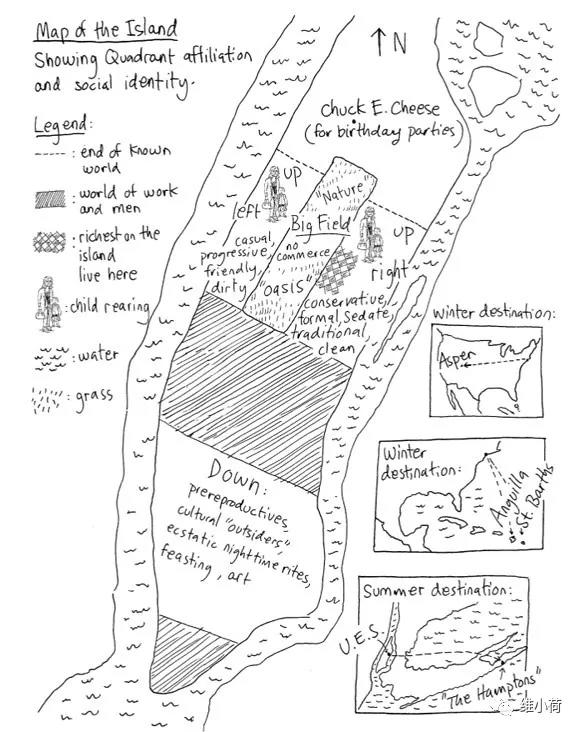 Map of the Island
Showing Quadrant affiliation
and social identity.
Legend:
: end of known
world
: world of work
and men
: richest on the
island
live here
: child rearing
: water
: grass
N
Chuck E. Cheese
(for birthday parties)
up
left
"Nature"
Big Field
no
commerce
"oasis"
casual,
progressive,
friendly,
dirty
up
right
conservative,
formal, Sedate,
traditional,
clean
Down:
prereproductives,
cultural "outsiders,"
ecstatic nighttime rites,
feasting, art
Winter destination:
Aspen
Winter
destination:
Anguilla
St. Barths
Summer destination:
U.E.S.
"The Hamptons"
维小荷